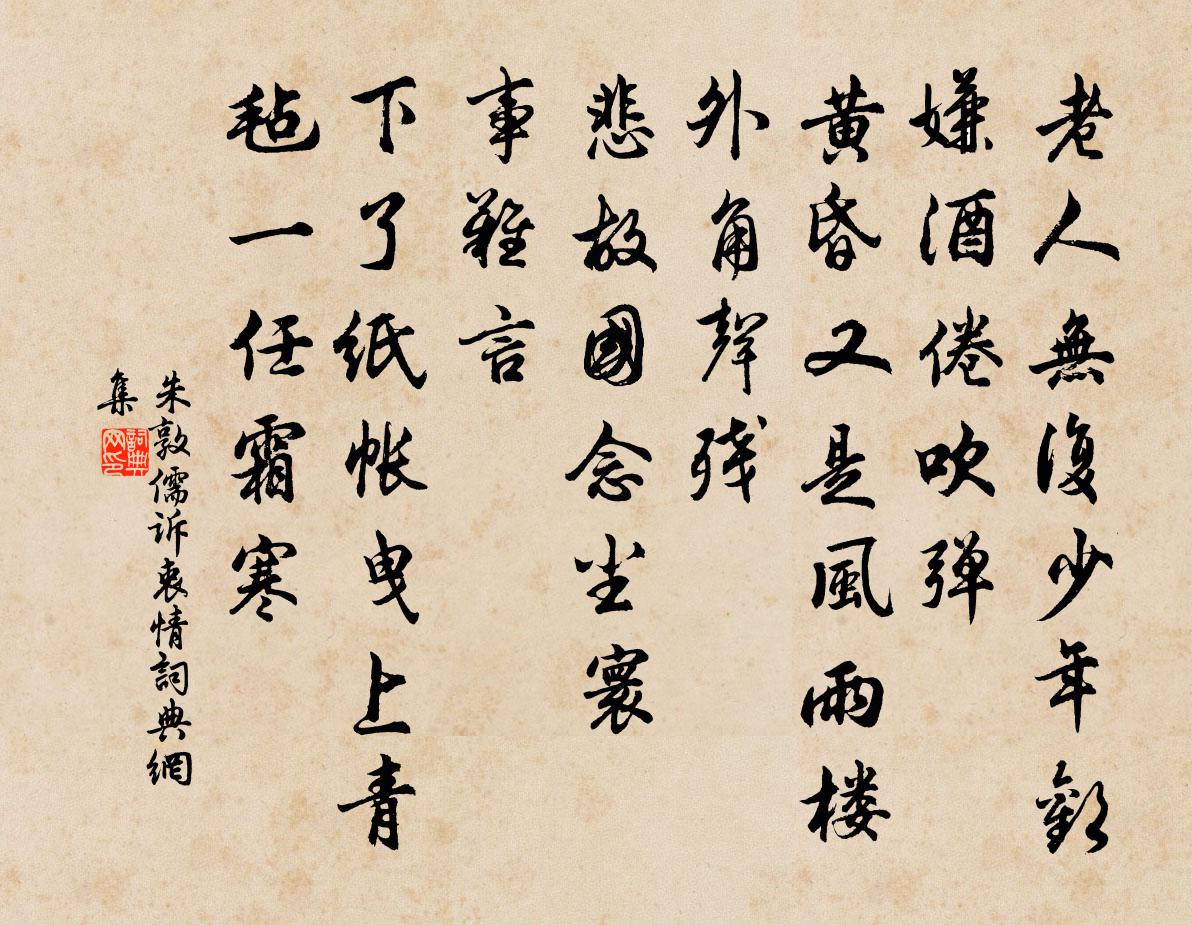 老人無復少年歡
嫌酒倦吹弹
黄昏又是風雨楼
外角聲残
悲故國念坐寰
事難言
下了紙帐曳上青
毡一任霜寒
朱敦儒訴衷情詞典網
集
詞典网印